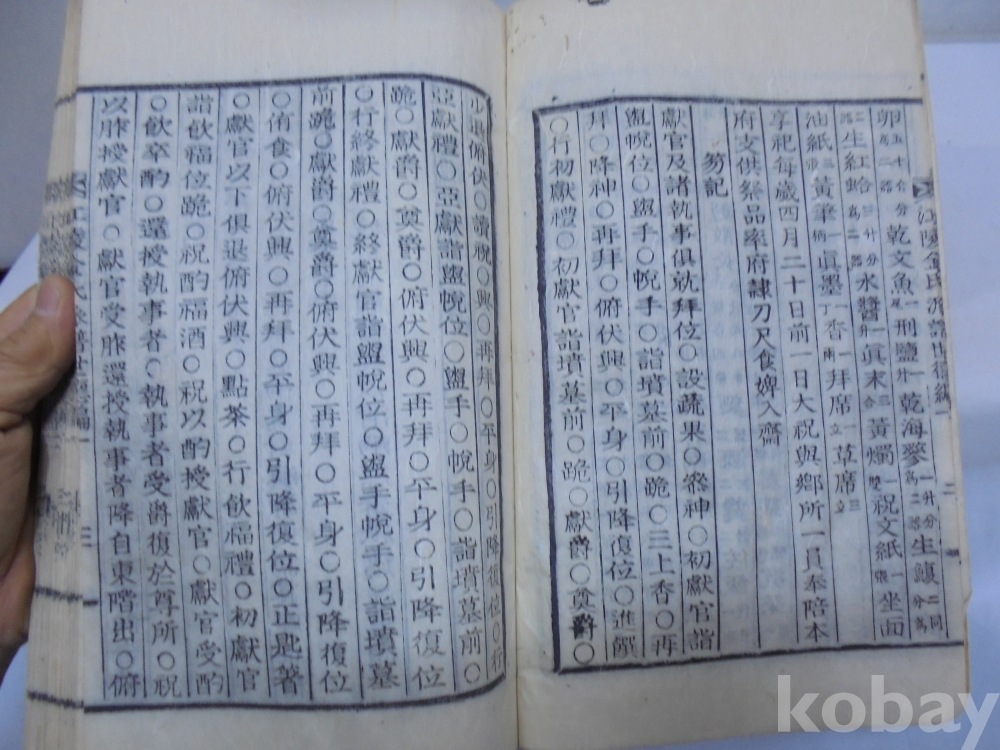 卵 乾文魚 刑鹽 乾海蔘 生鰒
生紅蛤 水醬 眞末 黃燭 祝文紙 坐面
油紙 黃筆 眞墨 香 拜席 草席
享祀每歲四月二十日前一日大祝與鄕所一員奉陪本
府支供祭品率府隷刀尺食婢入齋
笏記
獻官及諸執事俱就拜位○設蔬果○叅神○初獻官詣
盥帨位○盥手○帨手○詣墳墓前○跪○三上香○再
拜○降神○再拜○俯伏興○平身○引降復位○進饌
○行初獻禮○初獻官詣墳墓前○跪○獻爵○奠爵○
俯伏○讀祝○興○再拜○平身○引降復位○行
亞獻禮○亞獻詣盥帨位○盥手○帨手○詣墳墓前○
跪○獻爵○奠爵○俯伏興○再拜○平身○引降復位
○行終獻禮○終獻官詣盥帨位○盥手帨手○詣墳墓
前跪○獻爵○奠爵○俯伏興○再拜○平身○引降復位
○侑食○俯伏興○再拜○平身○引降復位○正匙著
○獻官以下俱退俯伏興○點茶○行飮福禮○初獻官
詣飮福位跪○祝酌福酒○祝以酌授獻官○獻官受酌
○飮卒酌○還授執事者○執事者受爵復於尊所○祝
以胙授獻官○獻官受胙還授執事者降自東階出○俯
kobay